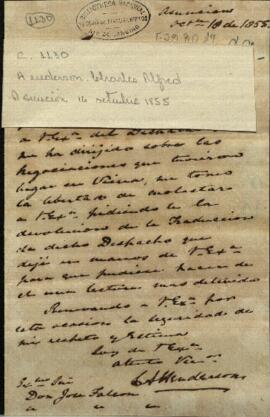 1130
BIBLIOTHECA NACIONAL
RIO DE JANEIRO
Asuncion
Octre 16 de 1855.
C. 1130
A Henderson. Charles Alfred
Asuncion 16 octubre 1855
a V.Exa. del Despacho
me ha dirigido sobre las
negociaciones que tuvieron
lugar en Viena, me tomo
la libertad de molestar
a V.Exa. pidiendole la
devolucion de la Traduccion
de dicho Despacho que
dejé en manos de V.Exa.
para que pudiese hacer de
el una lectura mas detenida
Renovando a V.Exa. por
esta ocasion la seguridad de
mi respeto y estima
Soy de V.Exa.
atento
C A Henderson
Exmo Snr
Don Jose Falcon